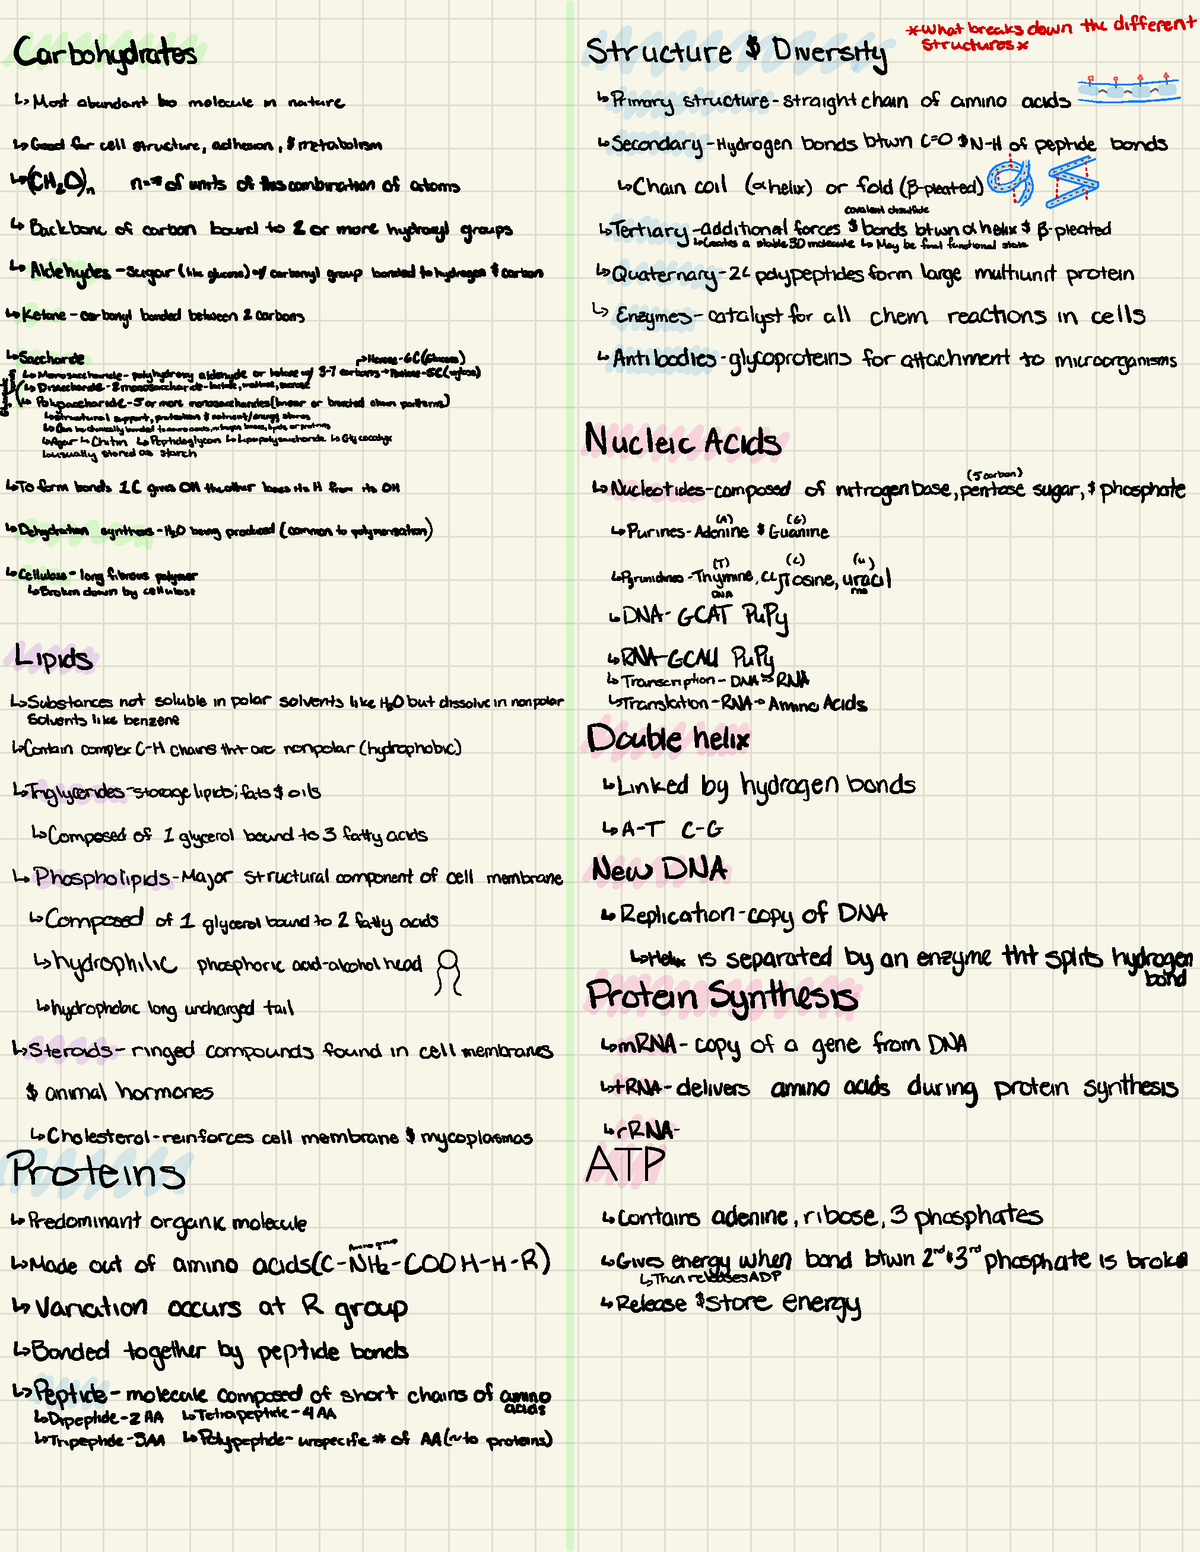 Carbohydrates
↳ Most abundant bio molecule in nature
↳ Good for cell structure, adhesion, $ metabolism
↳ (CH₂O)n n=# of units of this combination of atoms
↳ Backbone of carbon bound to 2 or more hydroxyl groups
↳ Aldehydes - sugar (like glucose) w/ carbonyl group bonded to hydrogen $ carbon
↳ Ketone - carbonyl bonded between 2 carbons
↳ Saccharide
↳ Hexose-6C (Glucose)
↳ Monosaccharide - polyhydroxy aldehyde or ketone w/ 3-7 carbons → Pentose-5C (xylose)
↳ Disaccharide - 2 monosaccharide - lactose, maltose, sucrose
↳ Polysaccharide - 5 or more monosaccharides (linear or branched chain patterns)
↳ Structural support, protection $ nutrient/energy stores
↳ Can be chemically bonded to amino acids, nitrogen bases, lipids, or proteins
↳ Agar ↳ Chitin ↳ Peptidoglycan ↳ Lipopolysaccharide ↳ Glycocalyx
↳ usually stored as starch
↳ To form bonds 1 C gives OH the other loses its H from its OH
↳ Dehydration synthesis - H₂O being produced (common to polymerization)
↳ Cellulose - long fibrous polymer
↳ Broken down by cellulose
Lipids
↳ Substances not soluble in polar solvents like H₂O but dissolve in nonpolar
solvents like benzene
↳ Contain complex C-H chains tht are nonpolar (hydrophobic)
↳ Triglycerides - storage lipids; fats $ oils
↳ Composed of 1 glycerol bound to 3 fatty acids
↳ Phospholipids - Major structural component of cell membrane
↳ Composed of 1 glycerol bound to 2 fatty acids
↳ hydrophilic phosphoric acid-alcohol head
↳ hydrophobic long uncharged tail
↳ Steroids - ringed compounds found in cell membranes
$ animal hormones
↳ Cholesterol - reinforces cell membrane $ mycoplasmas
Proteins
↳ Predominant organic molecule
Amino group
↳ Made out of amino acids (C-NH₂-COOH-H-R)
↳ Variation occurs at R group
↳ Bonded together by peptide bonds
↳ Peptide - molecule composed of short chains of amino
acids
↳ Dipeptide - 2 AA ↳ Tetrapeptide - 4 AA
↳ Tripeptide - 3AA ↳ Polypeptide - unspecific # of AA (~to proteins)
*What breaks down the different
structures*
Structure $ Diversity
↳ Primary structure - straight chain of amino acids
↳ Secondary - Hydrogen bonds btwn C=O $ N-H of peptide bonds
↳ Chain coil (α helix) or fold (β-pleated)
covalent disulfide
↳ Tertiary - additional forces $ bonds btwn α helix $ β-pleated
↳ Creates a stable 3D molecule ↳ May be final functional state
↳ Quaternary - 2< polypeptides form large multiunit protein
↳ Enzymes - catalyst for all chem reactions in cells
↳ Antibodies - glycoproteins for attachment to microorganisms
Nucleic Acids
(5 carbon)
↳ Nucleotides - composed of nitrogen base, pentose sugar, $ phosphate
(A) (G)
↳ Purines - Adenine $ Guanine
(T) (C) (U)
↳ Pyrimidines - Thymine, cytosine, uracil
DNA rna
↳ DNA - GCAT PuPy
↳ RNA - GCAU PuPy
↳ Transcription - DNA → RNA
↳ Translation - RNA → Amino Acids
Double helix
↳ Linked by hydrogen bonds
↳ A-T C-G
New DNA
↳ Replication - copy of DNA
↳ Helix is separated by an enzyme tht splits hydrogen
bond
Protein Synthesis
↳ mRNA - copy of a gene from DNA
↳ tRNA - delivers amino acids during protein synthesis
↳ rRNA -
ATP
↳ Contains adenine, ribose, 3 phosphates
↳ Gives energy when bond btwn 2nd $ 3rd phosphate is broke
↳ Then releases ADP
↳ Release $ store energy